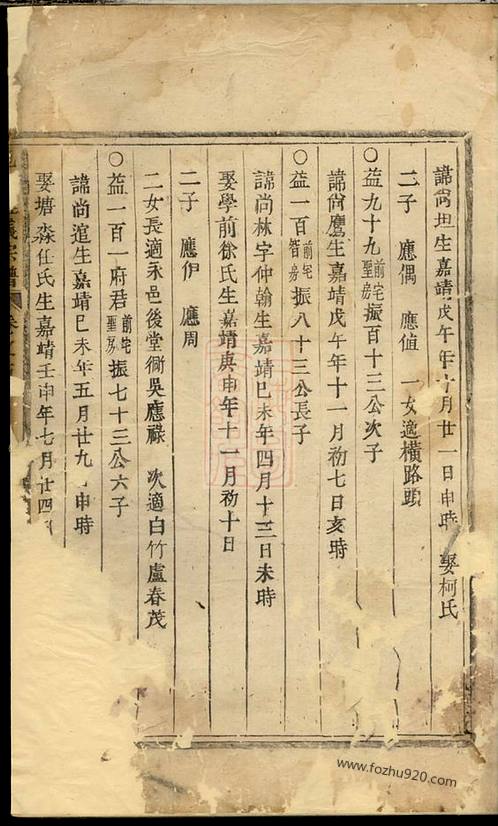 諱尚坦生嘉靖戊午年十月廿一日申時 娶柯氏
二子 應偶 應值 一女適橫路頭
○益九十九前宅聖房振百十三公次子
諱尚鷹生嘉靖戊午年十一月初七日亥時
○益一百前宅智房振八十三公長子
諱尚林字仲翰生嘉靖己未年四月十三日未時
娶學前徐氏生嘉靖庚申年十一月初十日
二子 應伊 應周
二女長適永邑後堂衕吳應祿 次適白竹盧春茂
○益一百一府君前宅聖房振七十三公六子
諱尚逭生嘉靖己未年五月廿九 申時
娶塘淼任氏生嘉靖壬申年七月廿四
宗譜
www.fozhu920.com